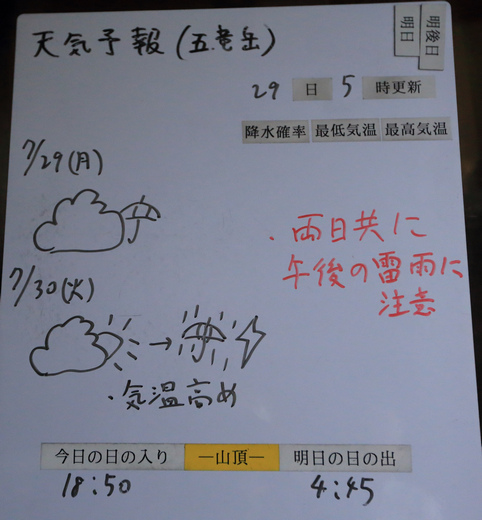 天気予報(五竜岳)
明日
明後日
29日 5時更新
降水確率 最低気温 最高気温
7/29(月)
7/30(火)
・両日共に
午後の雷雨に
注意
・気温高め
今日の日の入り —山頂— 明日の日の出
18:50 4:45